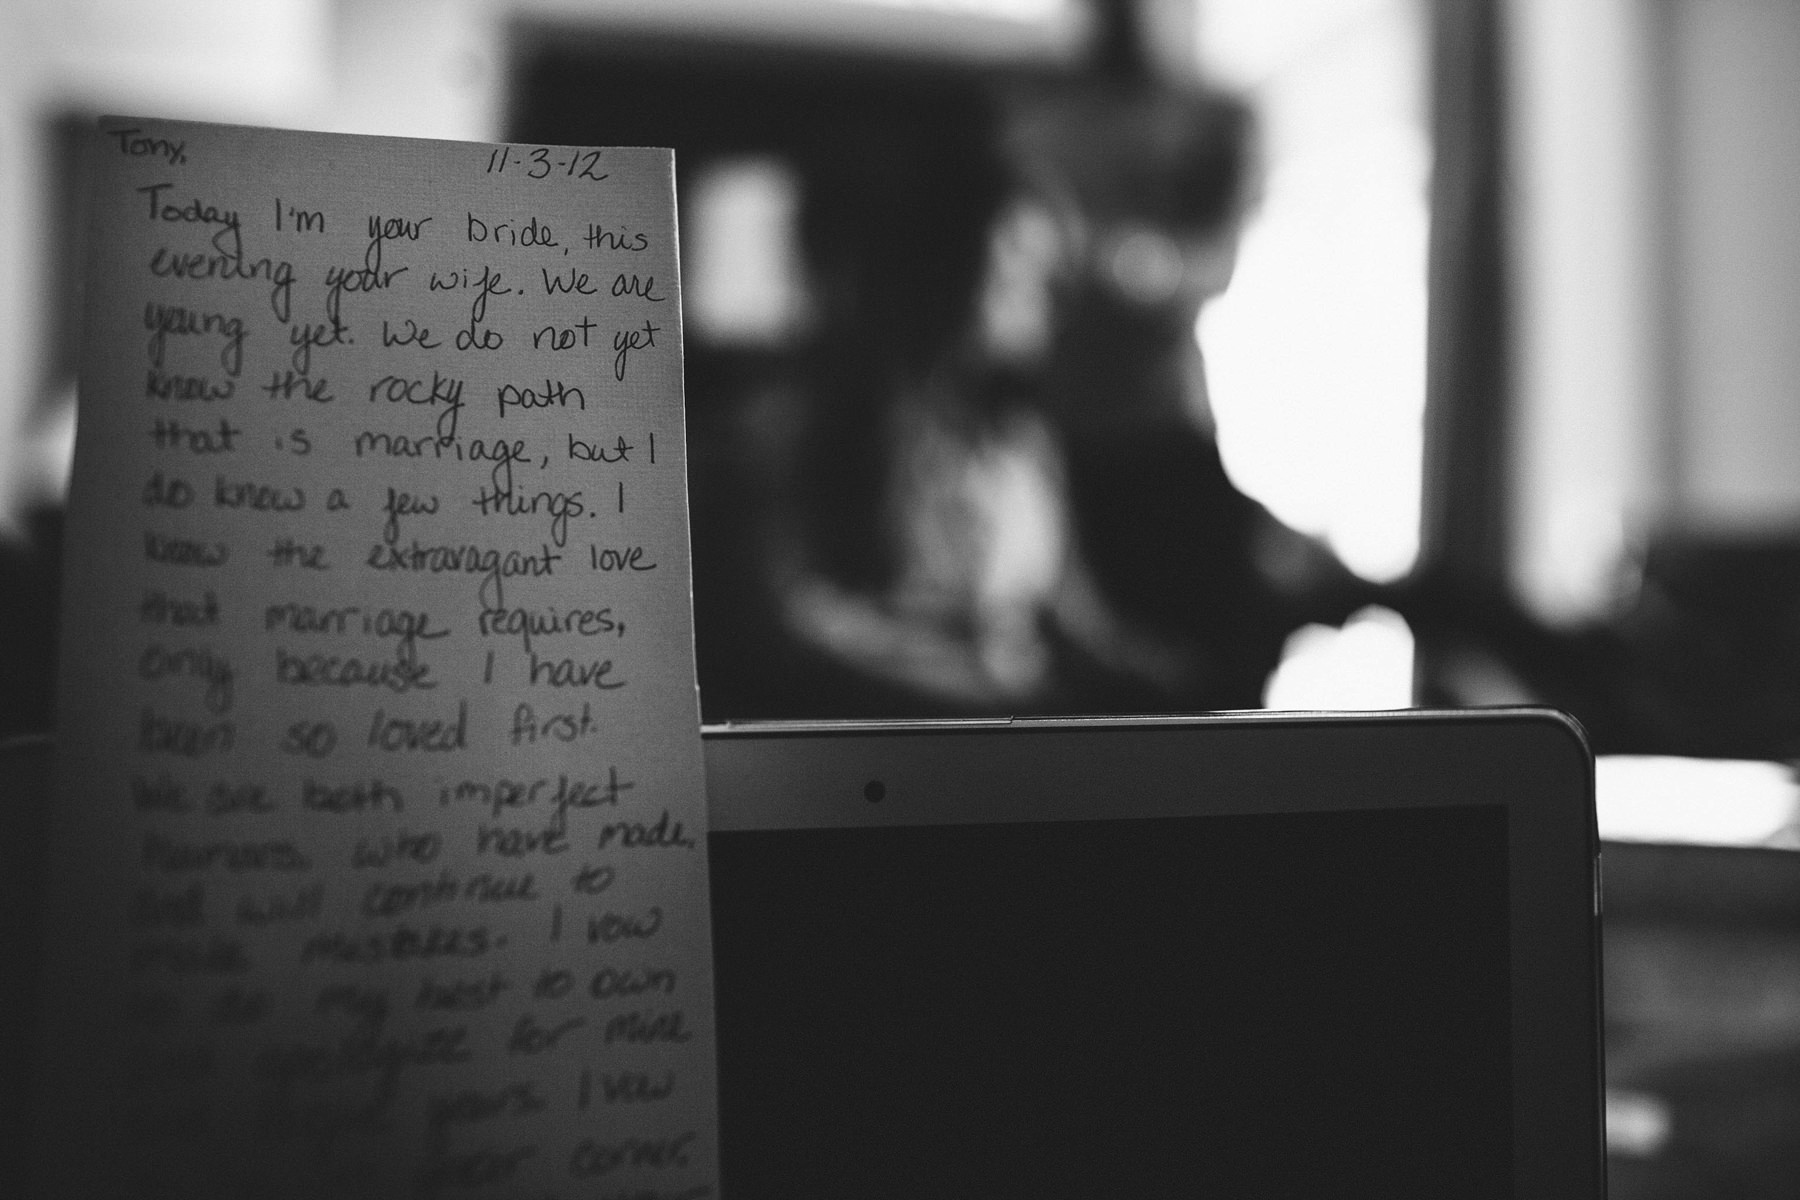 Tony,
11-3-12
Today I'm your bride, this
evening your wife. We are
young yet. We do not yet
know the rocky path
that is marriage, but I
do know a few things. I
know the extravagant love
that marriage requires,
only because I have
been so loved first.
We are both imperfect
humans, who have made,
and will continue to
make mistakes. I vow
to do my best to own
apologize for mine
yours. I vow
corner.